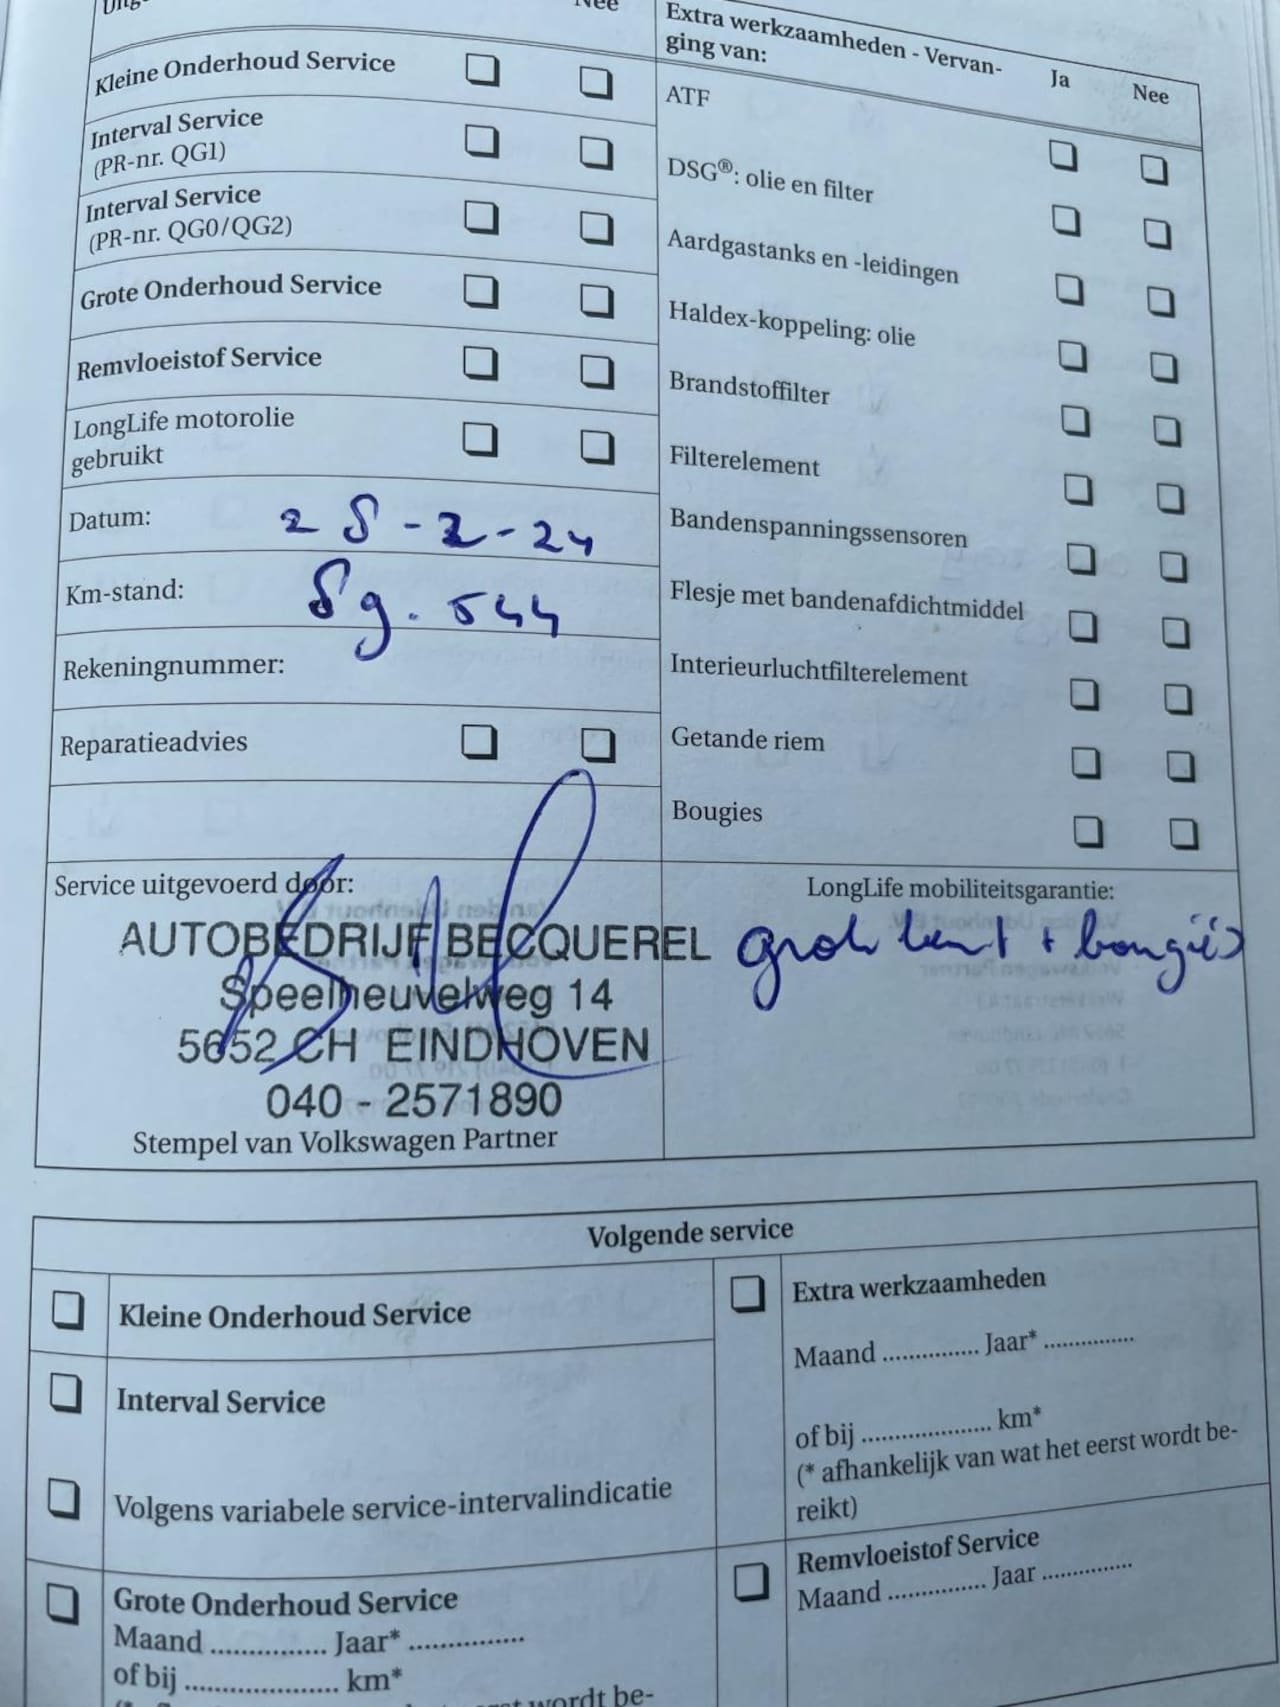 Nee
Kleine Onderhoud Service
Interval Service
(PR-nr. QG1)
Interval Service
(PR-nr. QG0/QG2)
Grote Onderhoud Service
Remvloeistof Service
LongLife motorolie
gebruikt
Datum: 28-2-24
Km-stand: 89.544
Rekeningnummer:
Reparatieadvies
Extra werkzaamheden - Vervan-
ging van:
Ja Nee
ATF
DSG®: olie en filter
Aardgastanks en -leidingen
Haldex-koppeling: olie
Brandstoffilter
Filterelement
Bandenspanningssensoren
Flesje met bandenafdichtmiddel
Interieurluchtfilterelement
Getande riem
Bougies
Service uitgevoerd door:
AUTOBEDRIJF BECQUEREL
Speelheuvelweg 14
5652 CH EINDHOVEN
040 - 2571890
Stempel van Volkswagen Partner
LongLife mobiliteitsgarantie:
+ bougies
Volgende service
Kleine Onderhoud Service
Interval Service
Volgens variabele service-intervalindicatie
Grote Onderhoud Service
Maand ............... Jaar* ...............
of bij .................... km*
wordt be-
Extra werkzaamheden
Maand ............... Jaar* ...............
of bij .................... km*
(* afhankelijk van wat het eerst wordt be-
reikt)
Remvloeistof Service
Maand ............... Jaar ...............